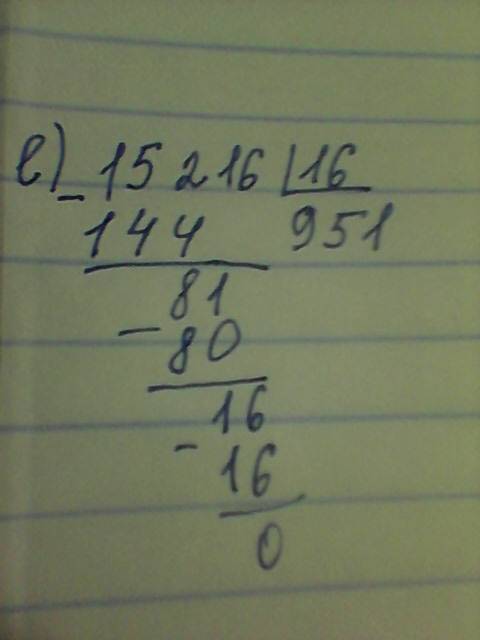 е) 15216 |16
- 144 951
81
- 80
16
- 16
0